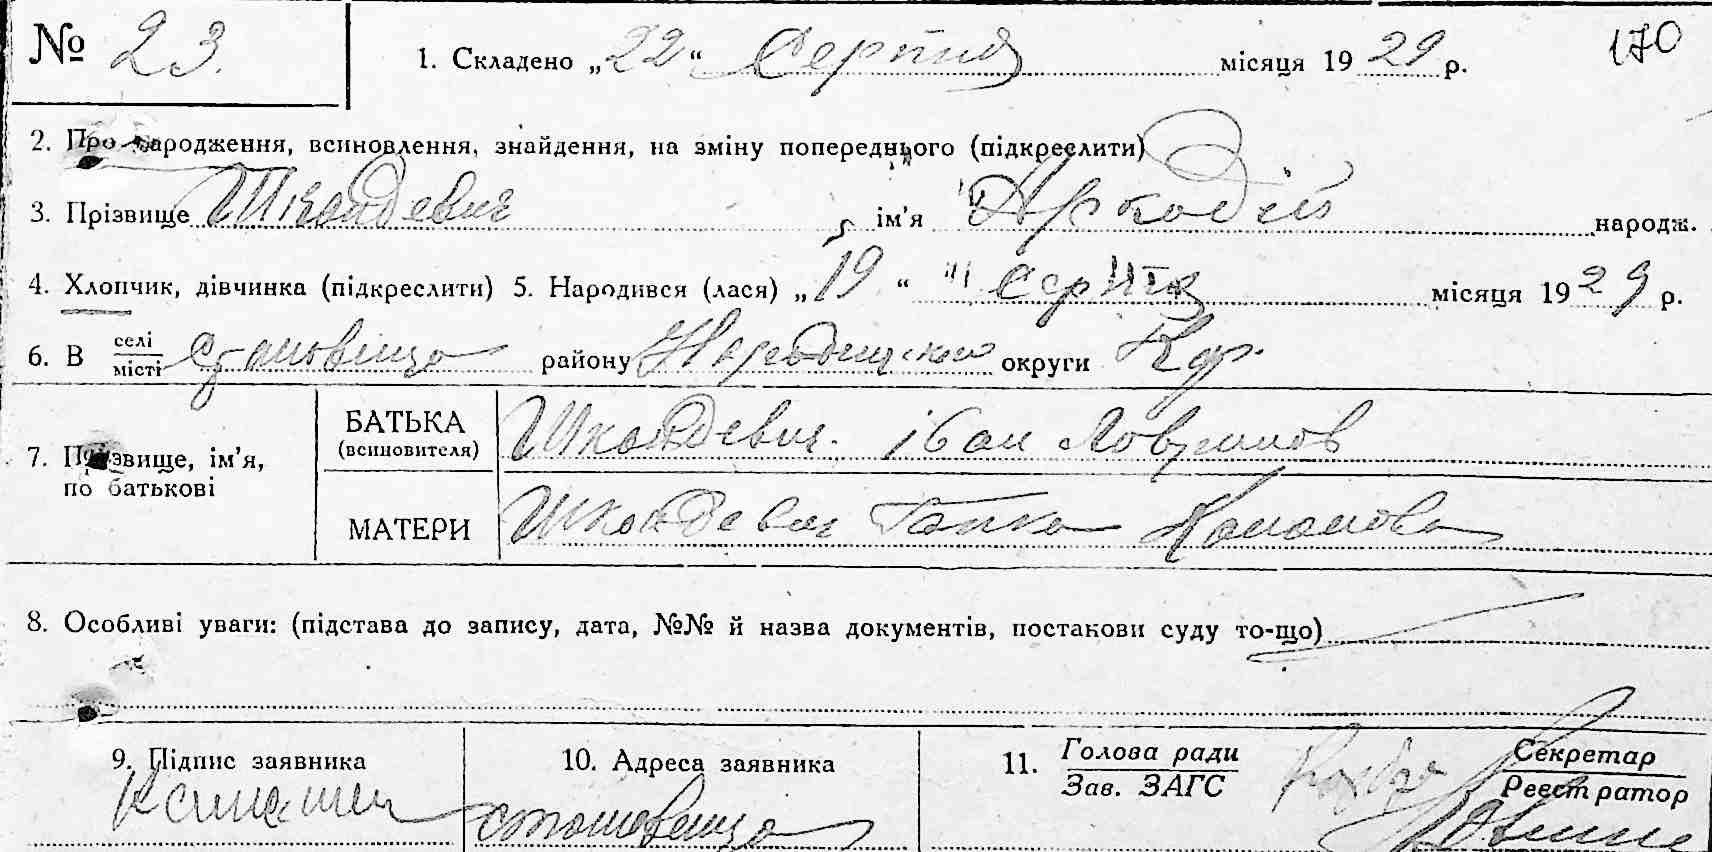 № 23. 1. Складено „22“ Серпня місяця 1929 р. 170
2. Про народження, всиновлення, знайдення, на зміну попереднього (підкреслити)
3. Прізвище Шкандевич ім'я Аркадій народж.
4. Хлопчик, дівчинка (підкреслити) 5. Народився (лася) „19“ Серпня місяця 1929 р.
6. В селі/місті Становище району Народицького округи
БАТЬКА Шкандевич. Іван
(всиновителя)
7. Прізвище, ім'я,
по батькові
МАТЕРИ Шкандевич Гапка
8. Особливі уваги: (підстава до запису, дата, №№ й назва документів, постанови суду то-що)
9. Підпис заявника 10. Адреса заявника 11. Голова ради Секретар
Зав. ЗАГС Реєстратор
становище